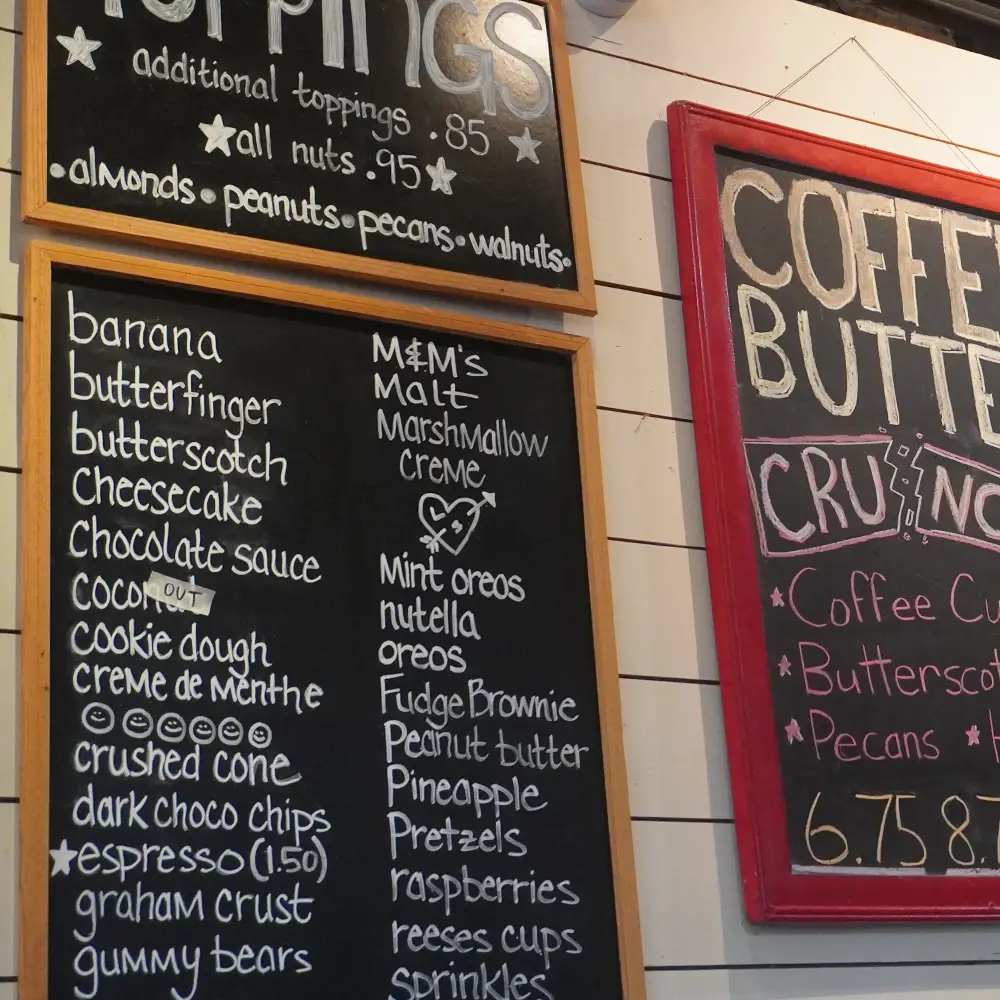 TOPPINGS
additional toppings .85
all nuts .95
•almonds•peanuts•pecans•walnuts•
banana
butterfinger
butterscotch
Cheesecake
Chocolate sauce
OUT
cookie dough
creme de menthe
crushed cone
dark choco chips
espresso (1.50)
graham crust
gummy bears
M&M's
Malt
Marshmallow
creme
Mint oreos
nutella
oreos
Fudge Brownie
Peanut butter
Pineapple
Pretzels
raspberries
reeses cups
sprinkles
COFFE
BUTTE
CRUNC
Coffee Cu
Butterscot
Pecans
6.75 8.7